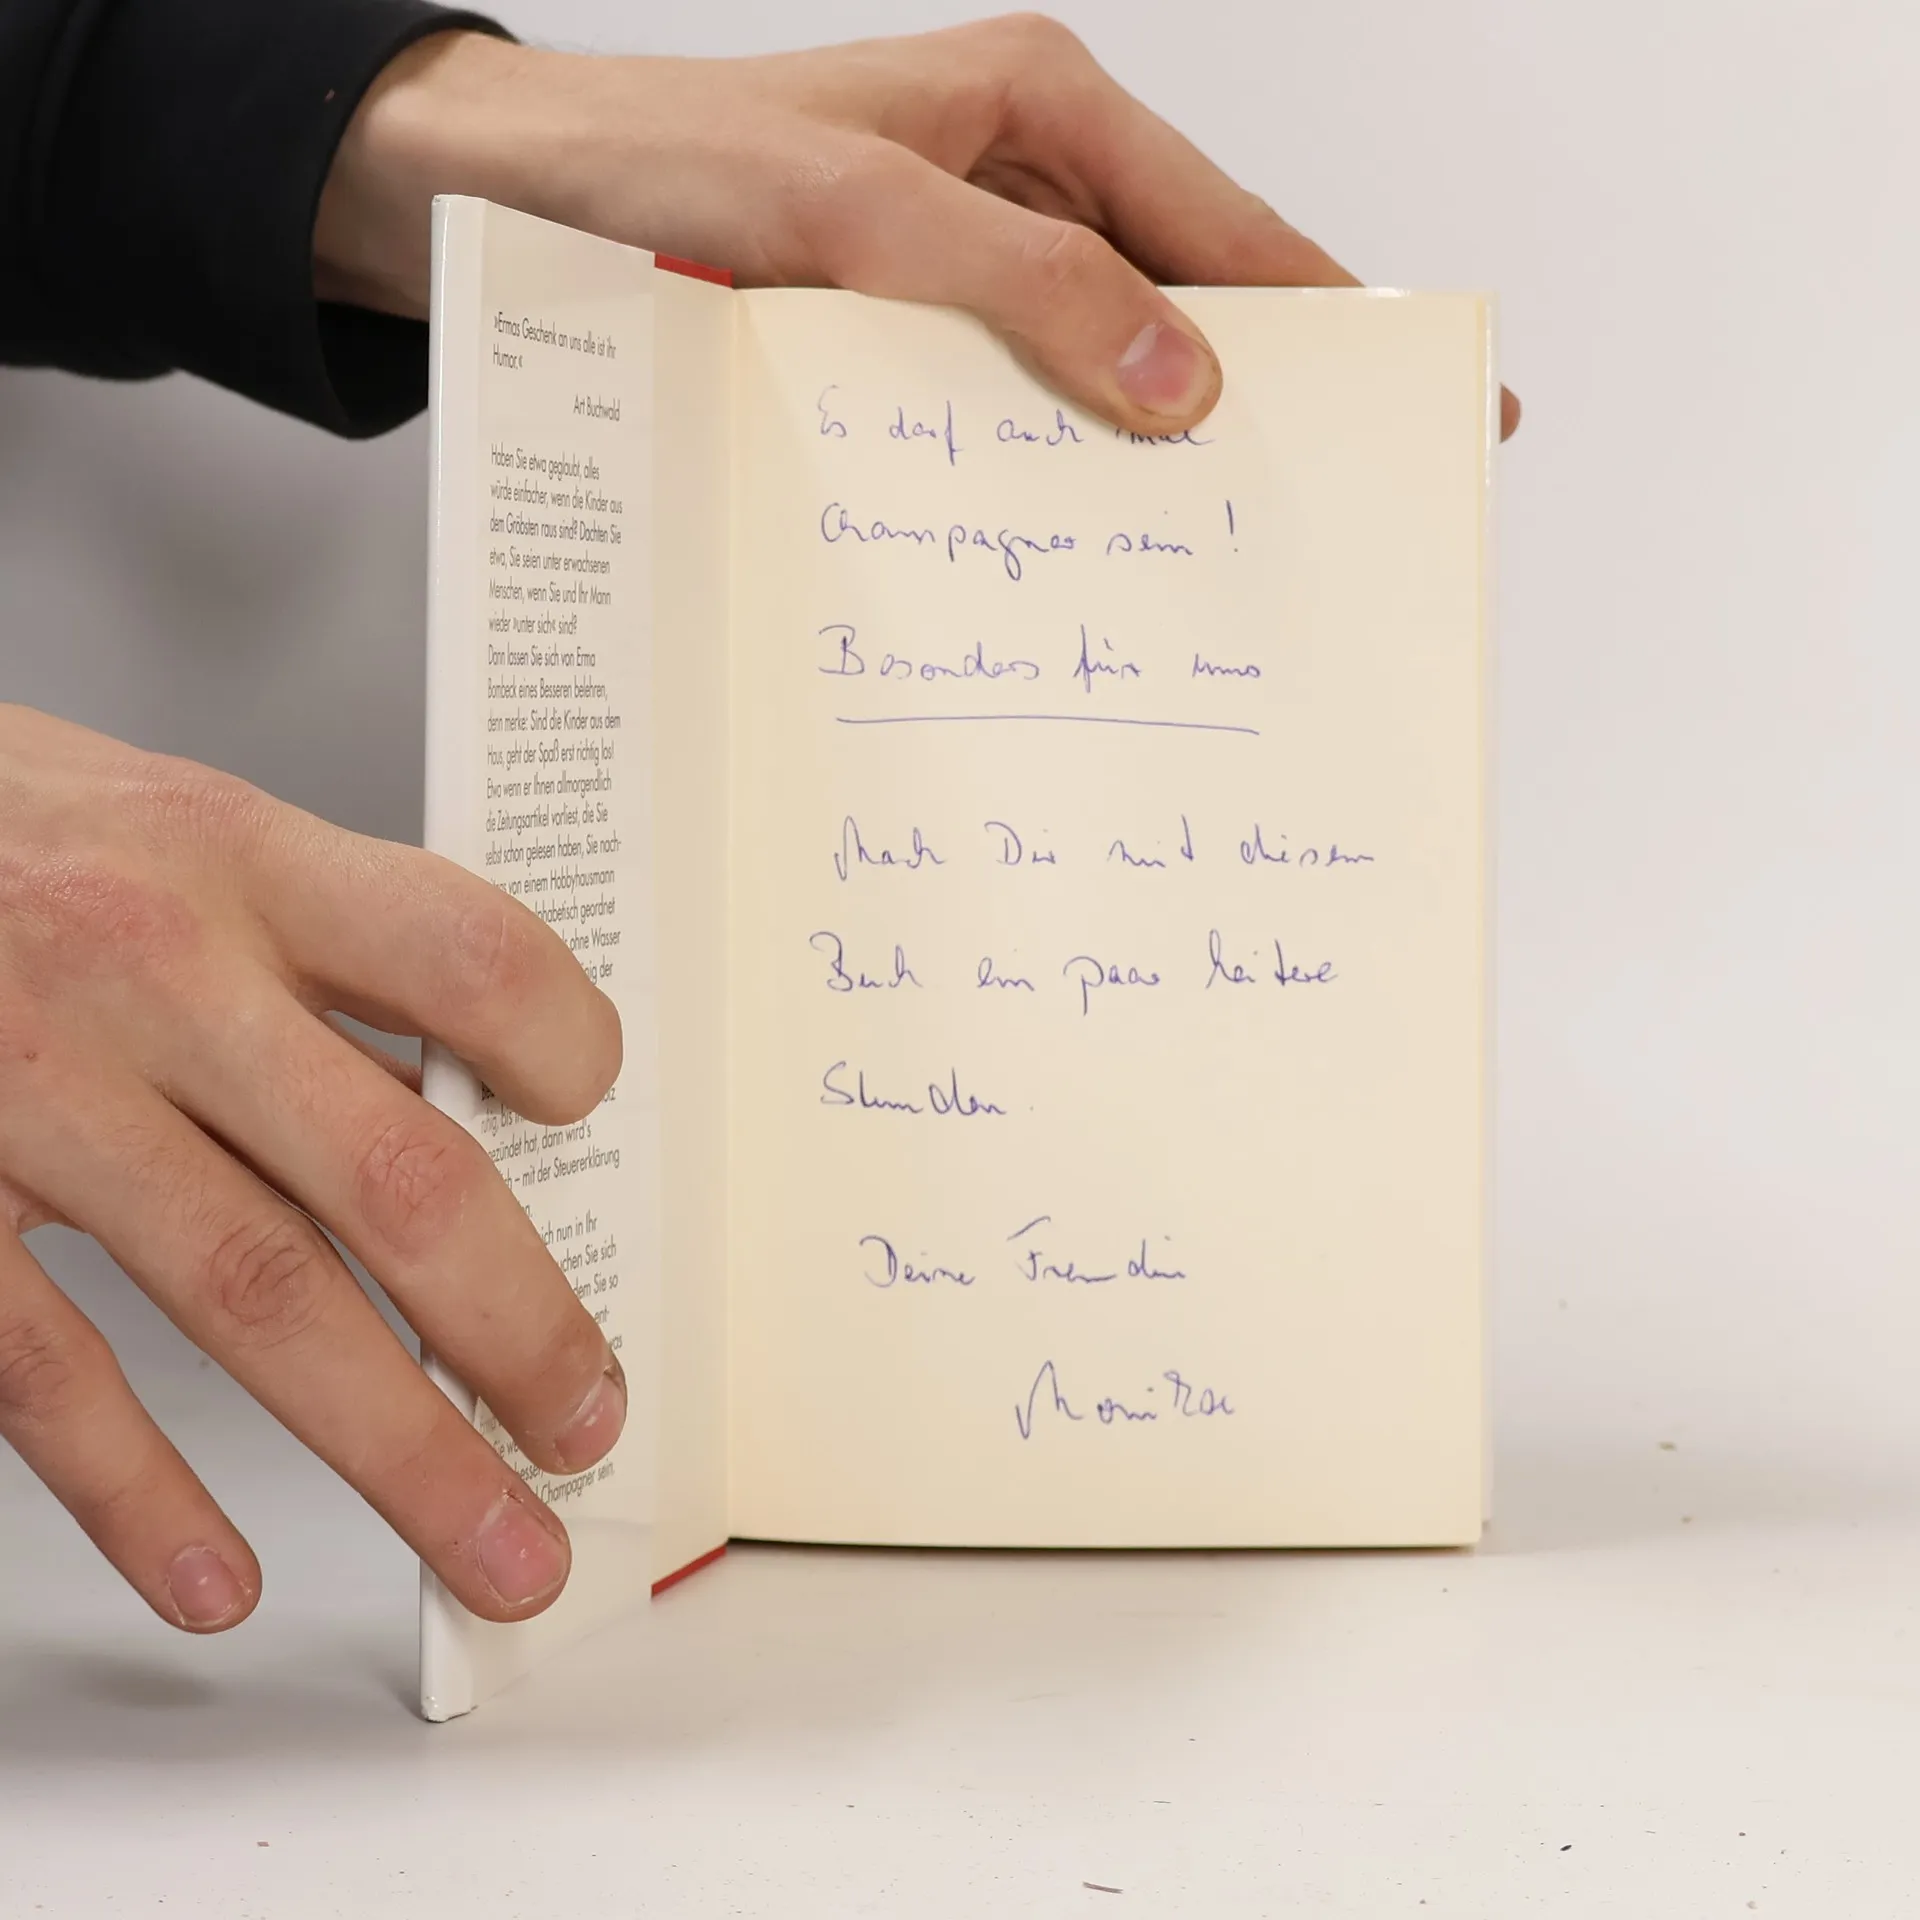 »Ermas Geschenk an uns alle ist ihr
Humor.«
Art Buchwald
Haben Sie etwa geglaubt, alles
würde einfacher, wenn die Kinder aus
dem Gröbsten raus sind? Dachten Sie
etwa, Sie seien unter erwachsenen
Menschen, wenn Sie und Ihr Mann
wieder »unter sich« sind?
Dann lassen Sie sich von Erma
Bombeck eines Besseren belehren,
denn merke: Sind die Kinder aus dem
Haus, geht der Spaß erst richtig los!
Etwa wenn er Ihnen allmorgendlich
die Zeitungsartikel vorliest, die Sie
selbst schon gelesen haben, Sie nach-
von einem Hobbyhausmann
alphabetisch geordnet
ohne Wasser
der
ruhig, bis
gezündet hat, dann wird's
– mit der Steuererklärung
nun in Ihr
Sie sich
dem Sie so
ent-
Sie
Champagner sein.
Es darf auch mal
Champagner sein!
Besonders für uns
Mach Dir mit diesem
Buch ein paar heitere
Stunden.
Deine Freundin
Monika